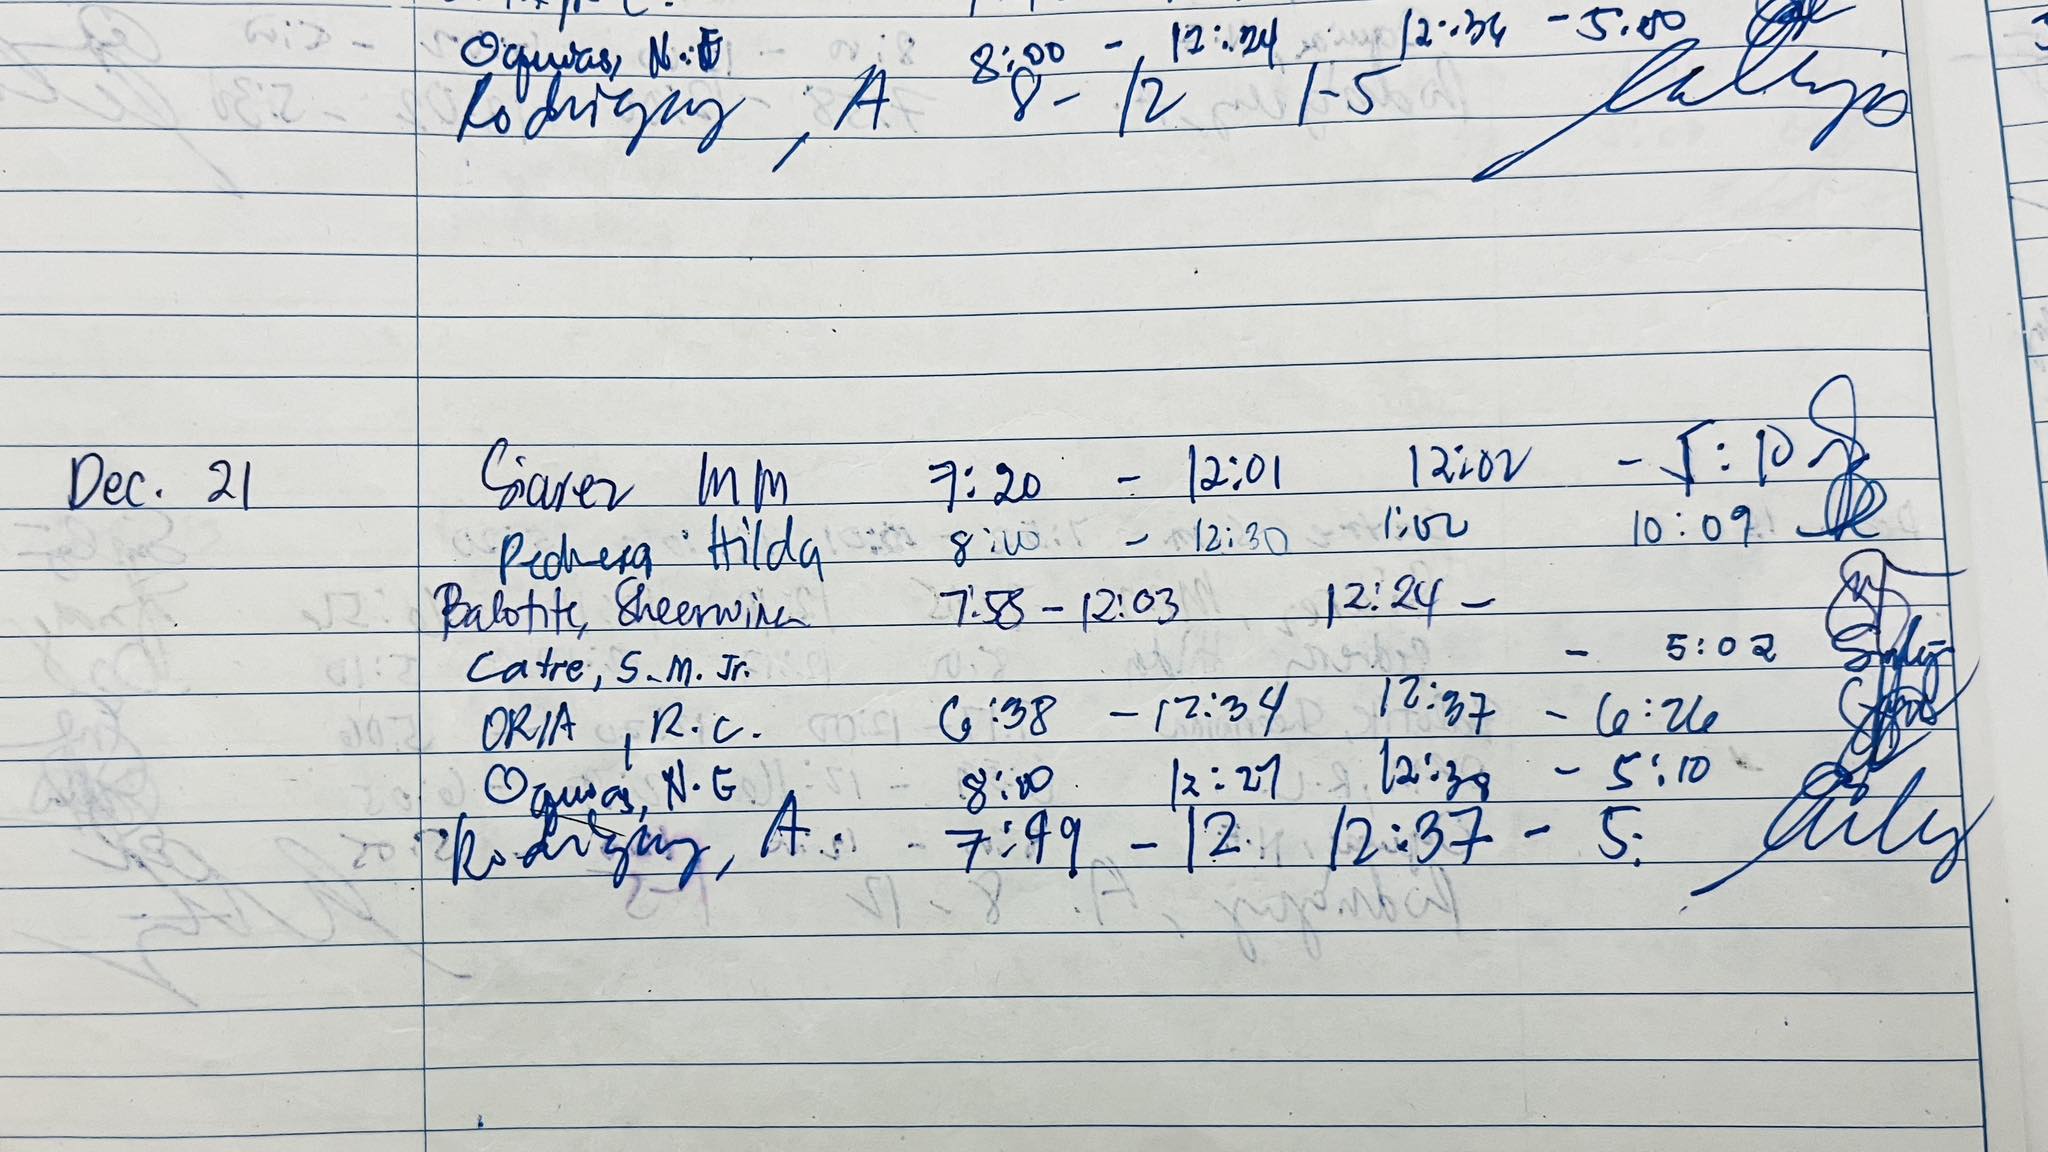 Oquias, N.E 8:00 - 12:24 12:36 - 5:00
Rodriguez, A 8- 12 1-5
Dec. 21 Siarez MM 7:20 - 12:01 12:02 - 5:10
Pedrera Hilda 8:00 - 12:30 1:00 10:09
Balotite, Sheerwina 7:58 - 12:03 12:24 -
Catre, S.M. Jr. - 5:02
ORIA, R.C. 6:38 - 12:34 12:37 - 6:26
Oquias, N.E 8:00 12:27 12:38 - 5:10
Rodriguez, A. 7:49 - 12 12:37 - 5: